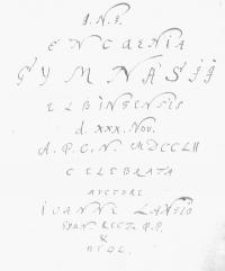 I. N. I.
ENCAENIA
GYMNASII
ELBINGENSIS
d. XXX. Nov.
A. P. C. N. MDCCLII
CELEBRATA
AUCTORE
IOANNE LANGIO